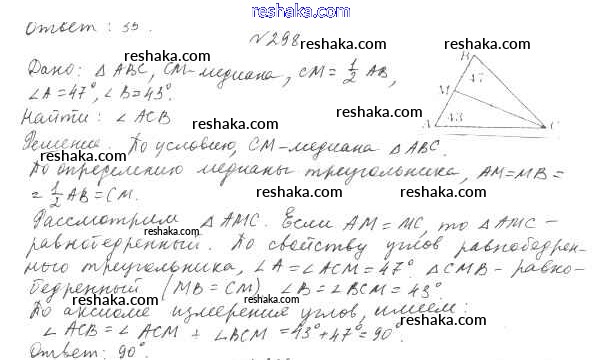 reshaka.com
Ответ: 55.
reshaka.com
№298
reshaka.com
reshaka.com
Дано: △ABC, CM-медиана, CM = 1/2 AB,
∠A = 47°, ∠B = 43°.
reshaka.com
Найти: ∠ACB
reshaka.com
B
47
M
A 43 C
Решение. По условию, CM-медиана △ABC.
reshaka.com
По определению медианы треугольника, AM = MB =
= 1/2 AB = CM.
reshaka.com
reshaka.com
Рассмотрим △AMC. Если AM = MC, то △AMC -
равнобедренный. По свойству углов равнобедрен-
reshaka.com
reshaka.com
ного треугольника, ∠A = ∠ACM = 47°. △CMB - равно-
бедренный (MB = CM), ∠B = ∠BCM = 43°
reshaka.com
reshaka.com
По аксиоме измерения углов, имеем:
∠ACB = ∠ACM + ∠BCM = 43° + 47° = 90°.
reshaka.com
reshaka.com
Ответ: 90°.